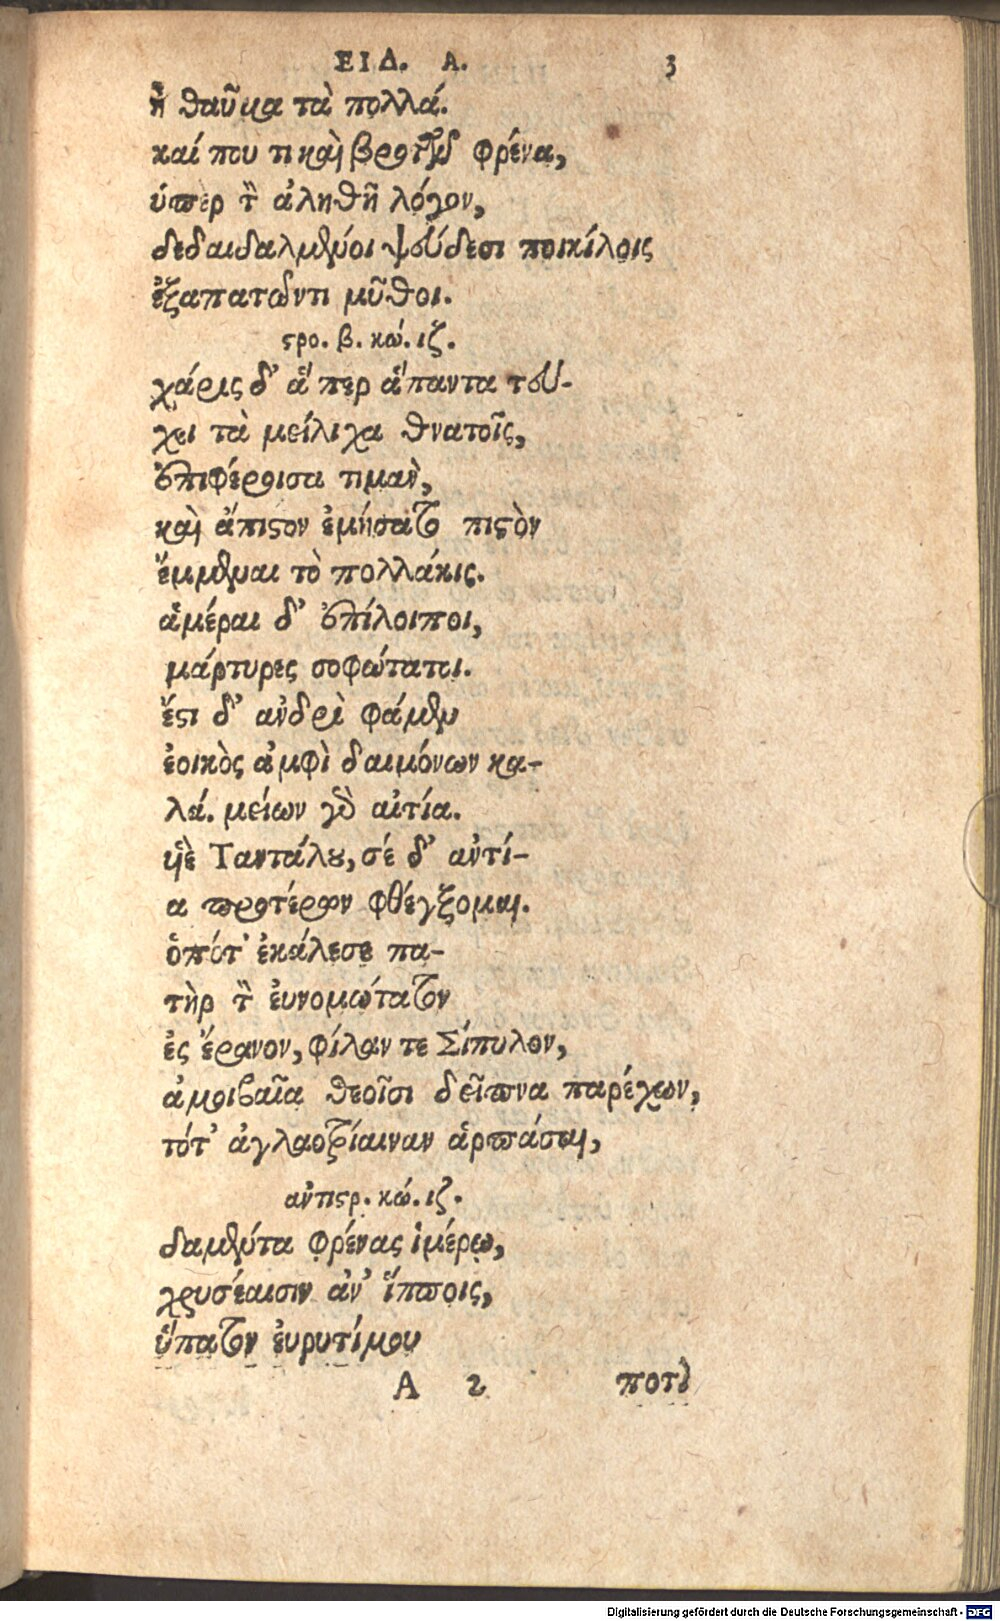 ΕΙΔ. Α. 3
ἦ θαῦμα τὰ πολλά.
καί που τι καὶ βροτῶν φρένα,
ὑπὲρ τὸν ἀληθῆ λόγον,
δεδαιδαλμένοι ψεύδεσι ποικίλοις
ἐξαπατῶντι μῦθοι.
στρο. β. κώ. ιζ.
χάρις δ' ἅ περ ἅπαντα τεύ-
χει τὰ μείλιχα θνατοῖς,
ἐπιφέροισα τιμὰν,
καὶ ἄπιστον ἐμήσατο πιστὸν
ἔμμεναι τὸ πολλάκις.
ἁμέραι δ' ἐπίλοιποι,
μάρτυρες σοφώτατοι.
ἔστι δ' ἀνδρὶ φάμεν
ἐοικὸς ἀμφὶ δαιμόνων κα-
λά. μείων γὸ αἰτία.
υἱὲ Ταντάλου, σέ δ' ἀντί-
α προτέρων φθέγξομαι.
ὁπότ' ἐκάλεσε πα-
τὴρ τὸν ἐυνομώτατον
ἐς ἔρανον, φίλαν τε Σίπυλον,
ἀμοιβαῖα θεοῖσι δεῖπνα παρέχων,
τότ' ἀγλαοτρίαιναν ἁρπάσαι,
ἀντιστρ. κώ. ιζ.
δαμέντα φρένας ἱμέρῳ,
χρυσέαισιν ἀν' ἵπποις,
ὕπατον ἐυρυτίμου
A 2 ποτὶ
Digitalisierung gefördert durch die Deutsche Forschungsgemeinschaft - DFG